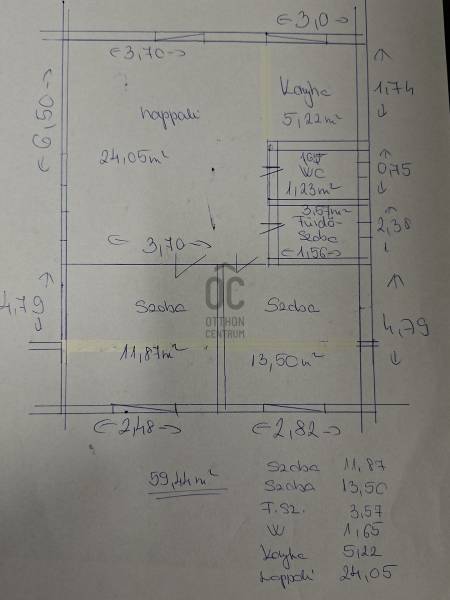 <3,0>
<3,70>
6,50
nappali
24,05m²
Konyha
5,22m²
1,74
WC
1,23m²
0,75
3,57m²
Fürdő-
szoba
<1,56>
2,38
<3,70>
4,79
Szoba
11,87m²
Szoba
13,50m²
4,79
OC
OTTHON
CENTRUM
<2,48>
<2,82>
59,44m²
Szoba 11,87
Szoba 13,50
F.SZ. 3,57
W 1,65
Konyha 5,22
nappali 24,05